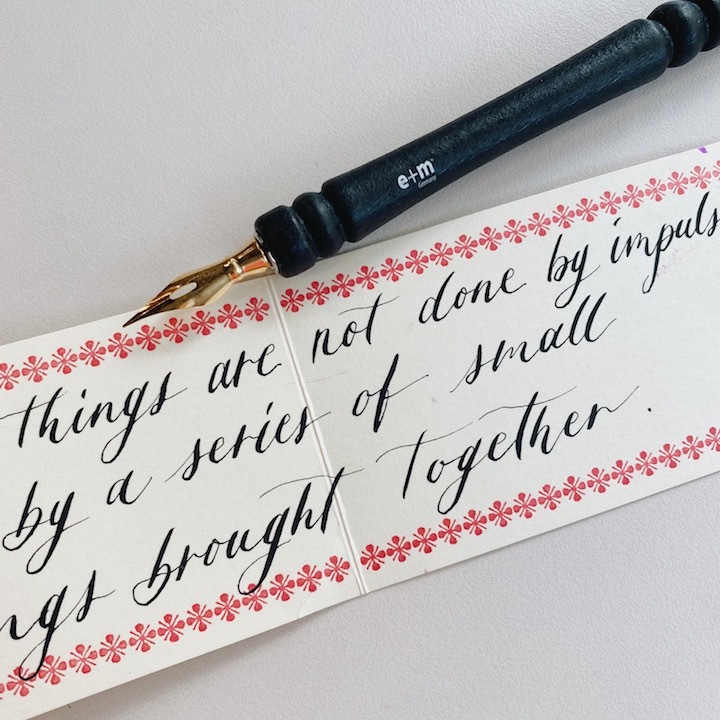 e+m
Germany
things are not done by impuls
by a series of small
ngs brought together.